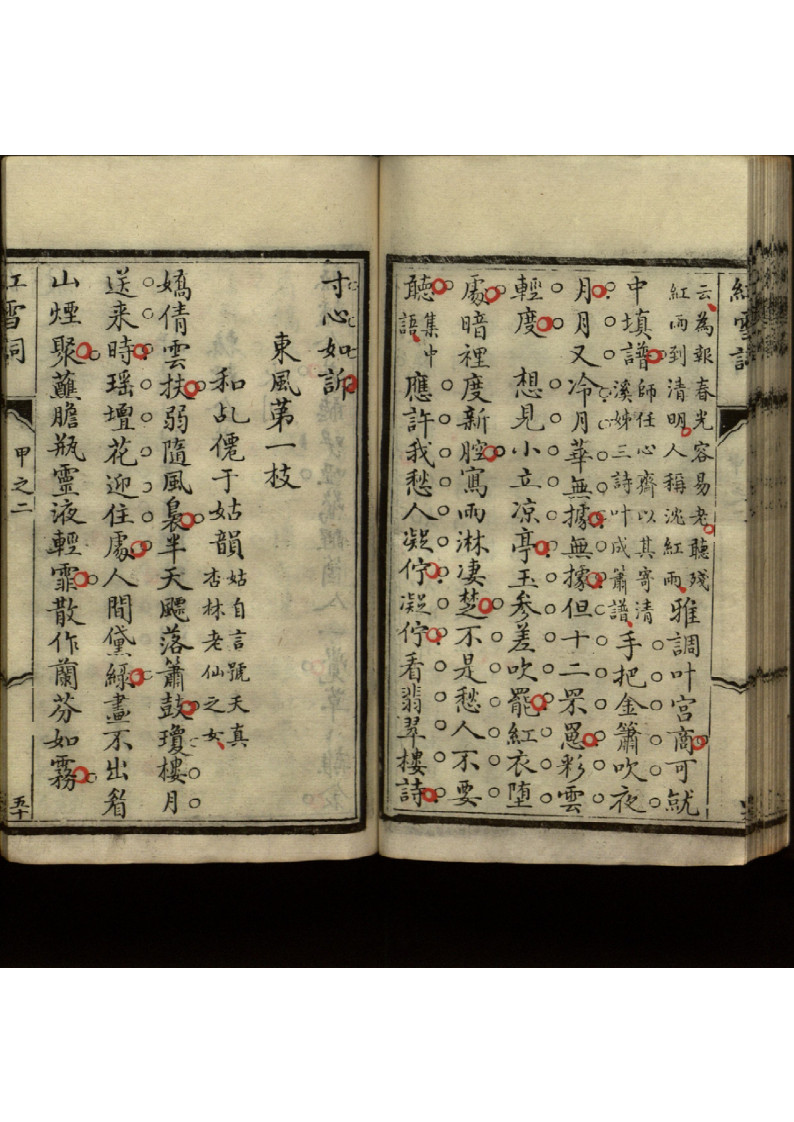 紅雪詞
云為報春光容易老聽殘
紅雨到清明人稱沈紅雨
雅調叶宮商可就
中填譜
師任心齋以其寄清
溪姊三詩叶成簫譜
手把金簫吹夜
月月又冷月華無據無據但十二罘罳彩雲
輕度　想見小立凉亭玉參差吹罷紅衣堕
處暗裡度新腔寫雨淋凄楚不是愁人不要
聽
集中
語
應許我愁人凝佇凝佇看翡翠樓詩
寸心如訴
東風第一枝
和乩僊于姑韻
姑自言號天真
杏林老仙之女
嬌倩雲扶弱隨風裊半天飃落簫鼓瓊樓月
送来時瑶壇花迎住處人間黛綠畫不出眉
山煙聚蘸膽瓶靈液輕霏散作蘭芬如霧
紅雪詞
甲之二
五十